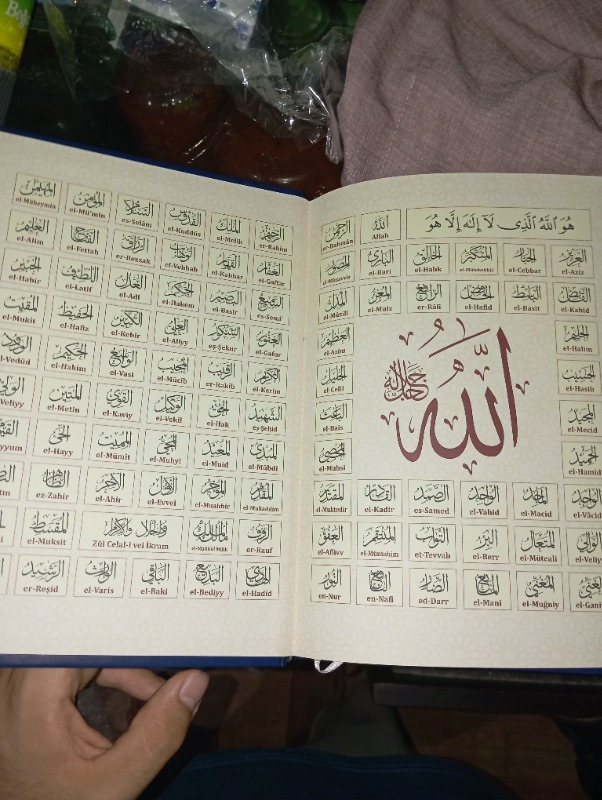 هُوَ اللّٰهُ الَّذِى لَٓا إِلٰهَ إِلَّا هُوَ
الله الرحمن الرحيم الملك القدوس السلام المؤمن المهيمن
Allah er-Rahmân er-Rahim el-Melik el-Kuddüs es-Selâm el-Mü'min el-Müheymin
العزيز الجبار المتكبر الخالق البارئ المصور الغفار القهار الوهاب الرزاق الفتاح العليم
el-Aziz el-Cebbar el-Mütekebbir el-Halık el-Bari el-Musavvir el-Gaffar el-Kahhar el-Vehhab er-Rezzak el-Fettah el-Alim
القابض الباسط الخافض الرافع المعز المذل السميع البصير الحكم العدل اللطيف الخبير
el-Kabid el-Basit el-Hafid er-Râfi el-Muiz el-Müzill es-Semi' el-Basir el-Hakem el-Adl el-Latif el-Habir
الحليم العظيم الغفور الشكور العلي الكبير الحفيظ المقيت
el-Halim el-Azim el-Gafur eş-Şekur el-Aliyy el-Kebir el-Hafiz el-Mukit
الله جل جلاله
الحسيب الجليل الكريم الرقيب المجيب الواسع الحكيم الودود
el-Hasib el-Celil el-Kerim er-Rakib el-Mücib el-Vasi el-Hakim el-Vedûd
المجيد الباعث الشهيد الحق الوكيل القوي المتين الولي
el-Mecid el-Bais eş-Şehid el-Hak el-Vekil el-Kaviy el-Metin Veliyy
الحميد المحصي المبدئ المعيد المحيي المميت الحي
el-Hamid el-Muhsi el-Mübdi el-Muid el-Muhyi el-Mümit el-Hayy yyum
الواجد الماجد الواحد الصمد القادر المقتدر المقدم المؤخر الأول الآخر الظاهر
el-Vâcid el-Macid el-Vahid es-Samed el-Kadir el-Muktedir el-Mukaddim el-Muahhir el-Evvel el-Ahir ez-Zahir
الوالي المتعال البر التواب المنتقم العفو الرؤف مالك الملك ذو الجلال والإكرام المقسط
el-Veliy el-Müteali el-Berr et-Tevvab el-Müntakim el-Afüvv er-Rauf el-Malikül Mülk Zül Celal-i vel İkram el-Muksit
الغني المغني المانع الضار النافع النور الهادي البديع الباقي الوارث الرشيد
el-Gani el-Muğniy el-Mani ed-Darr en-Nafi en-Nur el-Hadid el-Bediyy el-Baki el-Varis er-Reşid